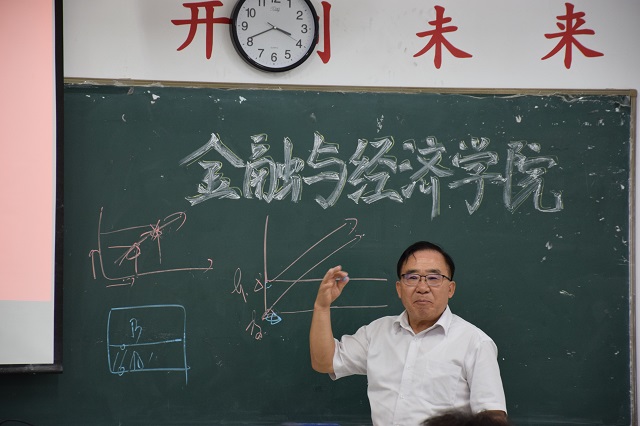 开创未来
金融与经济学院
B